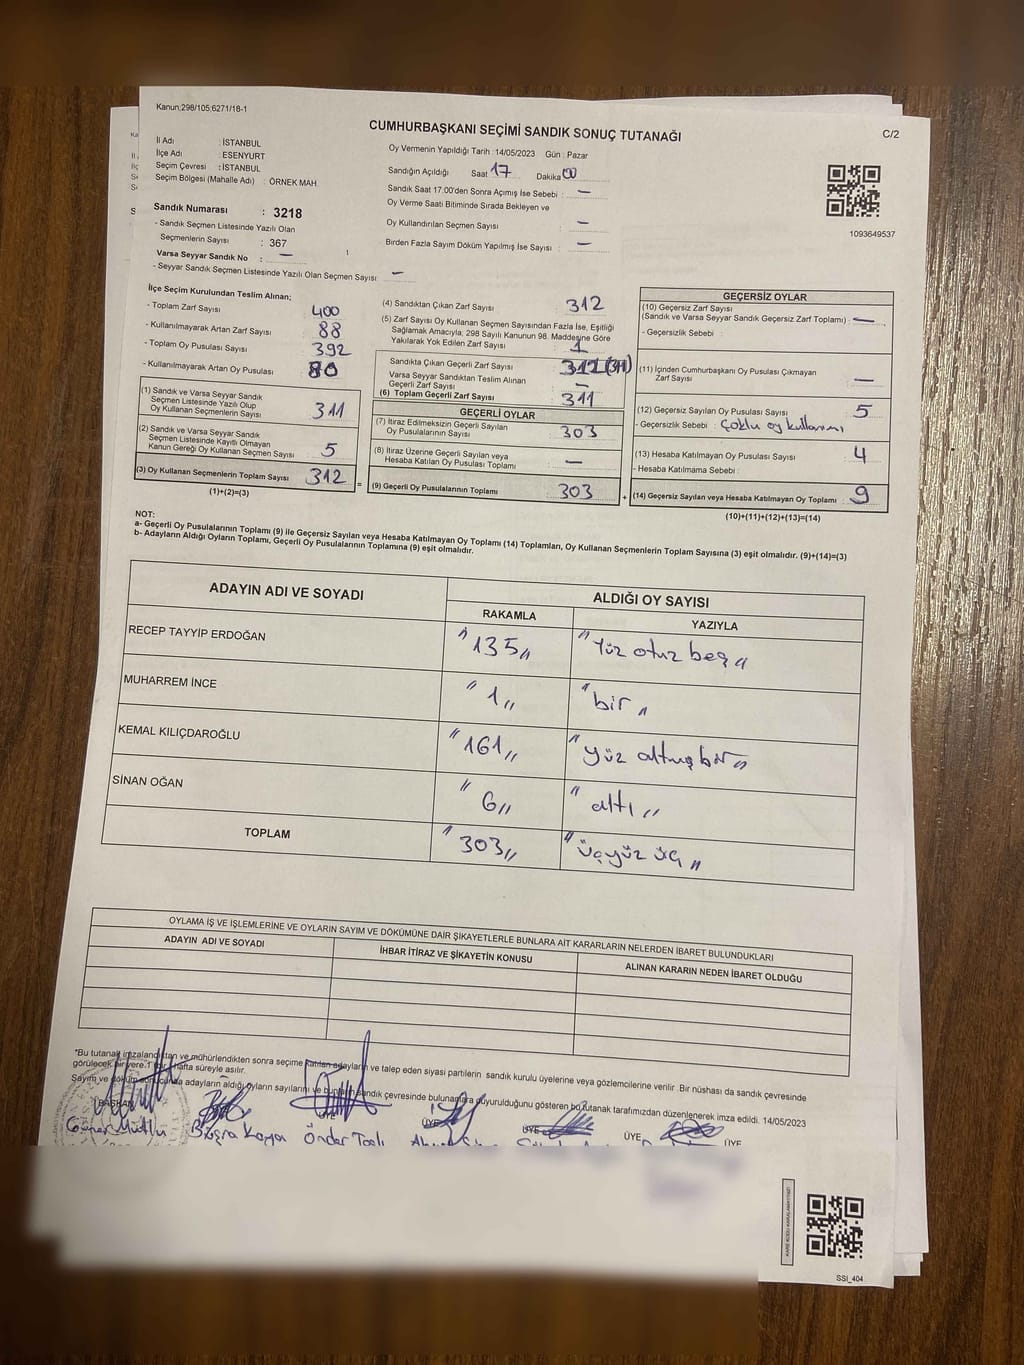 Kanun;298/105;6271/18-1
CUMHURBAŞKANI SEÇİMİ SANDIK SONUÇ TUTANAĞI
C/2
İl Adı : İSTANBUL
İlçe Adı : ESENYURT
Seçim Çevresi : İSTANBUL
Seçim Bölgesi (Mahalle Adı) : ÖRNEK MAH
Sandık Numarası : 3218
- Sandık Seçmen Listesinde Yazılı Olan
Seçmenlerin Sayısı : 367
Varsa Seyyar Sandık No : —
- Seyyar Sandık Seçmen Listesinde Yazılı Olan Seçmen Sayısı : —
Oy Vermenin Yapıldığı Tarih : 14/05/2023 Gün : Pazar
Sandığın Açıldığı Saat 17 Dakika 00
Sandık Saat 17:00'den Sonra Açımış İse Sebebi : —
Oy Verme Saati Bitiminde Sırada Bekleyen ve
Oy Kullandırılan Seçmen Sayısı : —
Birden Fazla Sayım Döküm Yapılmış İse Sayısı : —
1093649537
İlçe Seçim Kurulundan Teslim Alınan;
- Toplam Zarf Sayısı 400
- Kullanılmayarak Artan Zarf Sayısı 88
- Toplam Oy Pusulası Sayısı 392
- Kullanılmayarak Artan Oy Pusulası 80
(1) Sandık ve Varsa Seyyar Sandık
Seçmen Listesinde Yazılı Olup
Oy Kullanan Seçmenlerin Sayısı : 311
(2) Sandık ve Varsa Seyyar Sandık
Seçmen Listesinde Kayıtlı Olmayan
Kanun Gereği Oy Kullanan Seçmen Sayısı : 5
(3) Oy Kullanan Seçmenlerin Toplam Sayısı 312
(1)+(2)=(3)
(4) Sandıktan Çıkan Zarf Sayısı 312
(5) Zarf Sayısı Oy Kullanan Seçmen Sayısından Fazla İse, Eşitliği
Sağlamak Amacıyla; 298 Sayılı Kanunun 98. Maddesine Göre
Yakılarak Yok Edilen Zarf Sayısı : 1
Sandıkta Çıkan Geçerli Zarf Sayısı : 312 (311)
Varsa Seyyar Sandıktan Teslim Alınan
Geçerli Zarf Sayısı : —
(6) Toplam Geçerli Zarf Sayısı : 311
GEÇERLİ OYLAR
(7) İtiraz Edilmeksizin Geçerli Sayılan
Oy Pusulalarının Sayısı : 303
(8) İtiraz Üzerine Geçerli Sayılan veya
Hesaba Katılan Oy Pusulası Toplamı : —
= (9) Geçerli Oy Pusulalarının Toplamı : 303 +
GEÇERSİZ OYLAR
(10) Geçersiz Zarf Sayısı
(Sandık ve Varsa Seyyar Sandık Geçersiz Zarf Toplamı) : —
- Geçersizlik Sebebi :
(11) İçinden Cumhurbaşkanı Oy Pusulası Çıkmayan
Zarf Sayısı : —
(12) Geçersiz Sayılan Oy Pusulası Sayısı : 5
- Geçersizlik Sebebi : Çoklu oy kullanımı
(13) Hesaba Katılmayan Oy Pusulası Sayısı : 4
- Hesaba Katılmama Sebebi :
(14) Geçersiz Sayılan veya Hesaba Katılmayan Oy Toplamı : 9
(10)+(11)+(12)+(13)=(14)
NOT:
a- Geçerli Oy Pusulalarının Toplamı (9) ile Geçersiz Sayılan veya Hesaba Katılmayan Oy Toplamı (14) Toplamları, Oy Kullanan Seçmenlerin Toplam Sayısına (3) eşit olmalıdır. (9)+(14)=(3)
b- Adayların Aldığı Oyların Toplamı, Geçerli Oy Pusulalarının Toplamına (9) eşit olmalıdır.
ADAYIN ADI VE SOYADI
ALDIĞI OY SAYISI
RAKAMLA YAZIYLA
RECEP TAYYİP ERDOĞAN "135" "Yüz otuz beş"
MUHARREM İNCE "1" "bir"
KEMAL KILIÇDAROĞLU "161" "yüz altmış bir"
SİNAN OĞAN "6" "altı"
TOPLAM "303" "üçyüz üç"
OYLAMA İŞ VE İŞLEMLERİNE VE OYLARIN SAYIM VE DÖKÜMÜNE DAİR ŞİKAYETLERLE BUNLARA AİT KARARLARIN NELERDEN İBARET BULUNDUKLARI
ADAYIN ADI VE SOYADI İHBAR İTİRAZ VE ŞİKAYETİN KONUSU ALINAN KARARIN NEDEN İBARET OLDUĞU
*Bu tutanak imzalandıktan ve mühürlendikten sonra seçime katılan adayların ve talep eden siyasi partilerin sandık kurulu üyelerine veya gözlemcilerine verilir. Bir nüshası da sandık çevresinde
görülecek bir yere 1 hafta süreyle asılır.
Sayım ve döküm sonucunda adayların aldığı oyların sayılarını ve bunların sandık çevresinde bulunanlara duyurulduğunu gösteren bu tutanak tarafımızdan düzenlenerek imza edildi. 14/05/2023
BAŞKAN ÜYE ÜYE ÜYE ÜYE ÜYE
Büşra Önder
KARE KODU KARALAMAYINIZ!
SSI_404